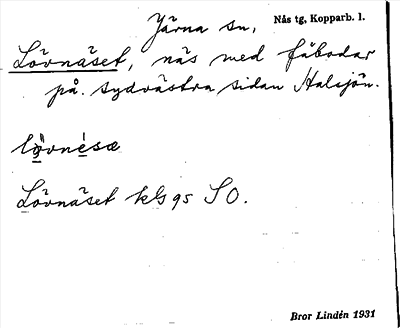 Järna sn, Nås tg, Kopparb. l.
Lövnäset, näs med fäbodar
på sydvästra sidan Halsjön.
Lövnäset kbl 95 SO.
Bror Lindén 1931